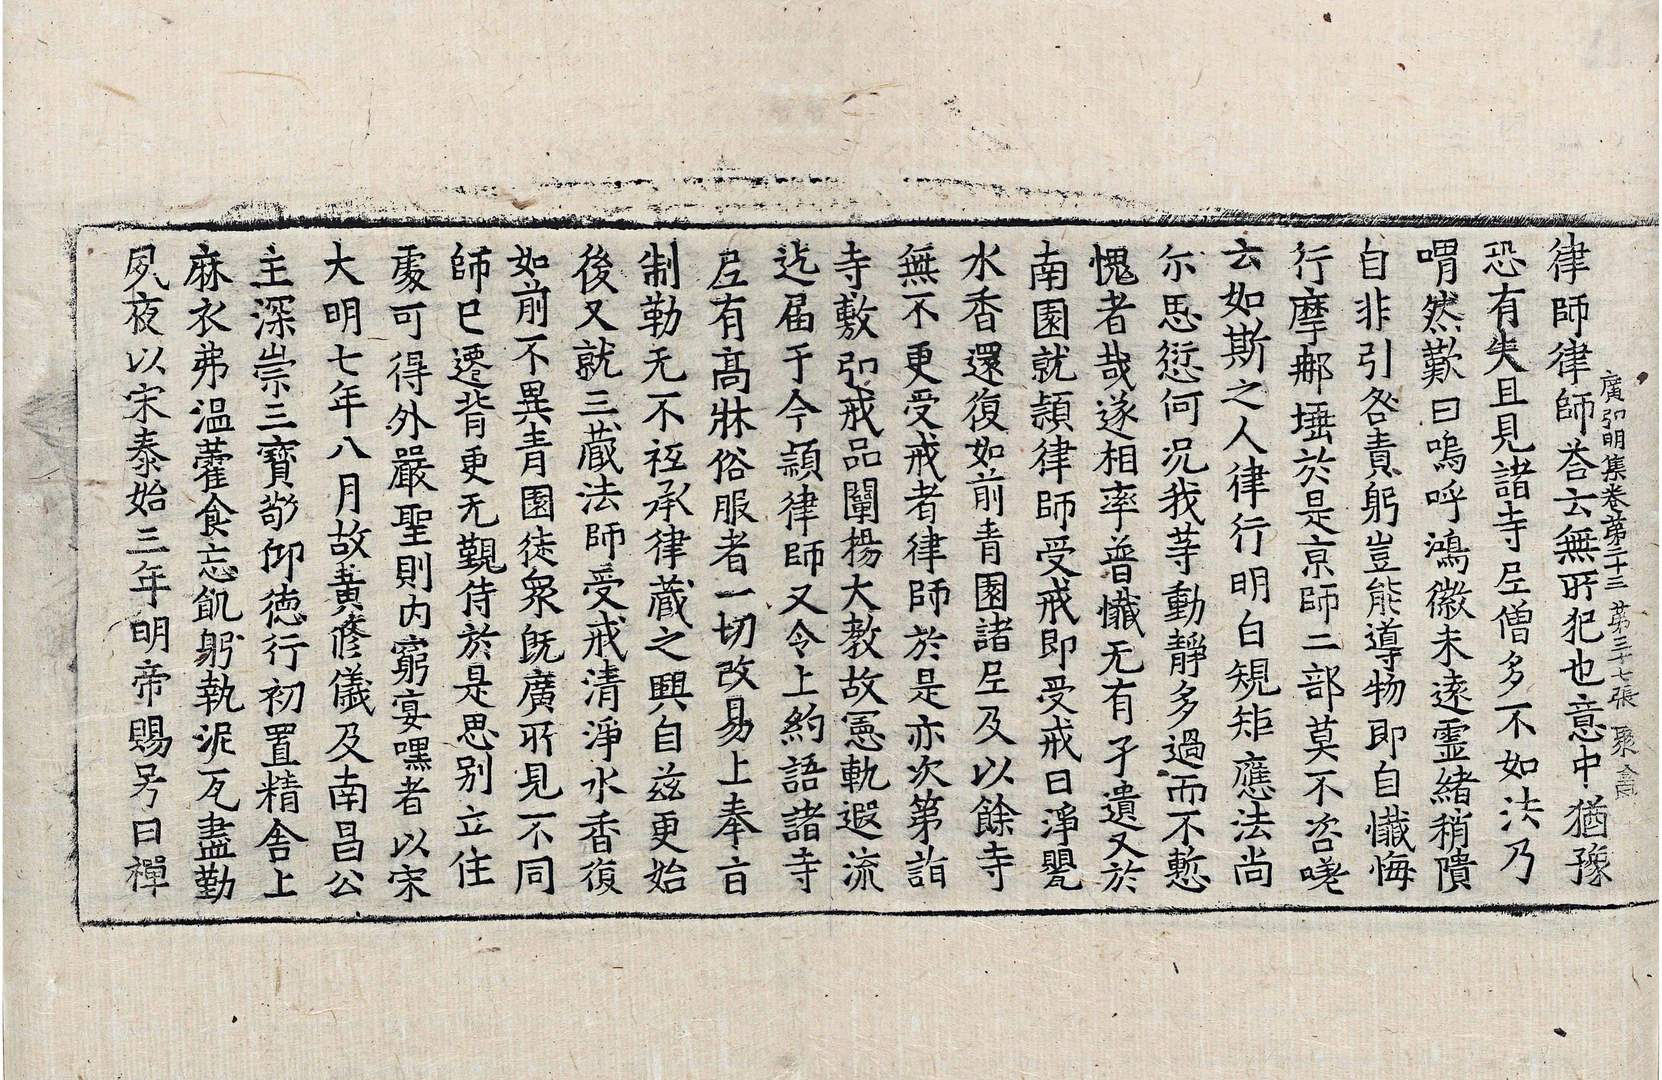 廣弘明集卷第二十三 第三十七張 聚
律師律師荅云無所犯也意中猶豫
恐有失且見諸寺尼僧多不如法乃
喟然歎曰嗚呼鴻徽未遠靈緒稍隤
自非引咎責躬豈能導物即自懺悔
行摩郍埵於是京師二部莫不咨嗟
云如斯之人律行明白規矩應法尚
尒思愆何况我等動靜多過而不慙
愧者哉遂相率普懺无有孑遺又於
南園就頴律師受戒即受戒日淨甖
水香還復如前青園諸尼及以餘寺
無不更受戒者律師於是亦次第詣
寺敷弘戒品闡揚大教故憲軌遐流
迄屆于今頴律師又令上約語諸寺
尼有髙牀俗服者一切改易上奉㫖
制勒无不祗承律藏之興自兹更始
後又就三藏法師受戒清淨水香復
如前不異青園徒衆旣廣所見不同
師已遷背更无覲侍於是思别立住
處可得外嚴聖則内窮宴嘿者以宋
大明七年八月故黄修儀及南昌公
主深崇三寶敬仰德行初置精舍上
麻衣弗温藿食忘飢躬執泥瓦盡勤
夙夜以宋泰始三年明帝賜号曰禪